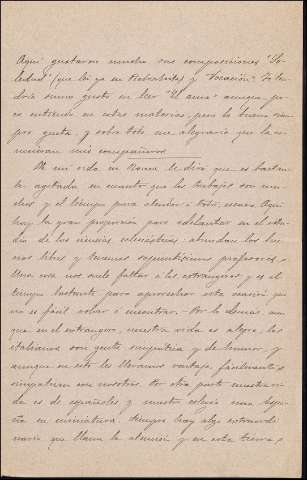 Aquí gustaron mucho sus composiciones "So-
ledad" (que leí ya en y "Vocación". Ten-
dría sumo gusto en leer "El aunque, po-
co entiendo en estas materias, pero lo bueno siem-
pre gusta, y sobre todo me alegraría que la co-
nocieran mis compañeros.
De mi vida en Roma le diré que es bastan-
te agitada en cuanto que los trabajos son mu-
chos y el tiempo para atender a todo, escaso. Aquí
hay la gran proporción para adelantar en el estu-
dio de las ciencias eclesiásticas: abundan los bue-
nos libros y tenemos sapientísimos profesores.
Una cosa nos suele faltar a los extranjeros y es el
tiempo bastante para aprovechar esta ocasión que
no es fácil volver a encontrar. Por lo demás aun-
que en el extranjero, nuestra vida es alegre, los
italianos son gente simpática y de humor, y
aunque en esto les llevamos ventaja, fácilmente
simpatizan con nosotros. Por otra parte nuestra vi-
da es de españoles y nuestro colegio una Espa-
ña en miniatura. Siempre hay algo extraordi-
nario que llama la atención y en esta tierra